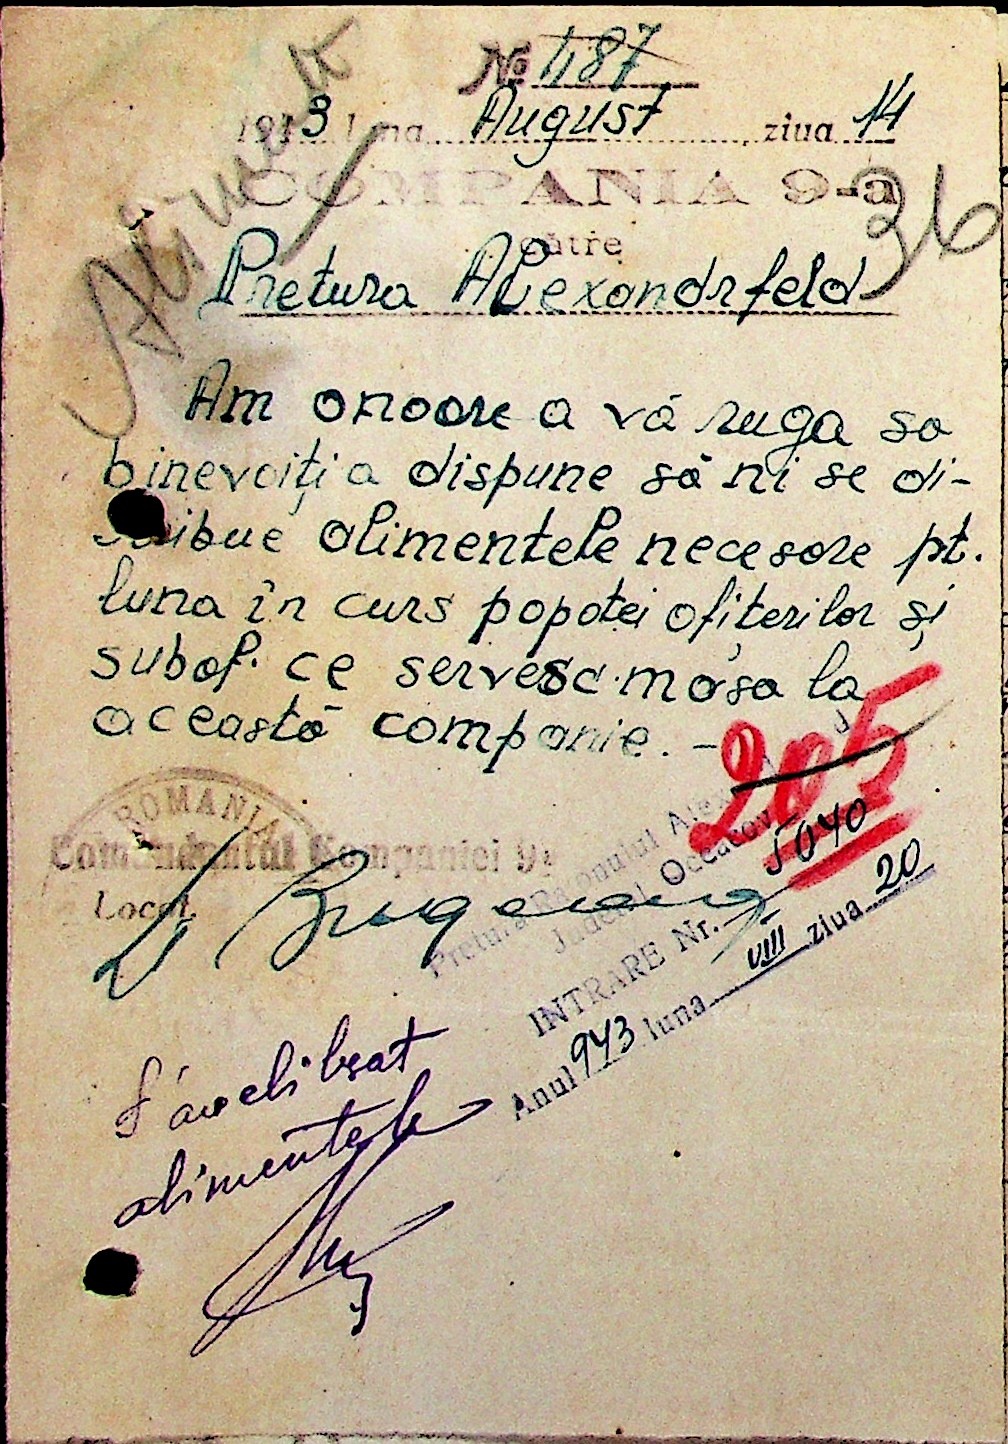 No 1187
1943 luna August ziua 14
COMPANIA 9-a
36
către
Pretura Alexandrfeld
Am onoore a vă ruga sa
binevoiți a dispune să ni se di-
stribue alimentele necesare pt.
luna în curs popotei ofițerilor și
subof. ce servesc masa la
această companie. -
205
ROMANIA
Comandantul Companiei 9
Local
Pretura Raionului Alex
Judetul Oceacov
INTRARE Nr. 5040
Anul 943 luna VIII ziua 20
S'au elibrat
alimentele